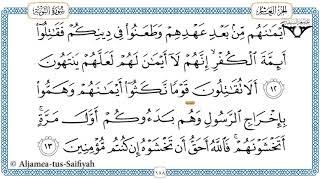 الجزء العاشر
سورة التوبة
أَيْمَٰنَهُم مِّنۢ بَعْدِ عَهْدِهِمْ وَطَعَنُوا۟ فِى دِينِكُمْ فَقَٰتِلُوٓا۟
أَئِمَّةَ ٱلْكُفْرِ ۙ إِنَّهُمْ لَآ أَيْمَٰنَ لَهُمْ لَعَلَّهُمْ يَنتَهُونَ
١٢ أَلَا تُقَٰتِلُونَ قَوْمًا نَّكَثُوٓا۟ أَيْمَٰنَهُمْ وَهَمُّوا۟
بِإِخْرَاجِ ٱلرَّسُولِ وَهُم بَدَءُوكُمْ أَوَّلَ مَرَّةٍ ۚ
أَتَخْشَوْنَهُمْ ۚ فَٱللَّهُ أَحَقُّ أَن تَخْشَوْهُ إِن كُنتُم مُّؤْمِنِينَ ١٣
© Aljamea-tus-Saifiyah
١٨٨